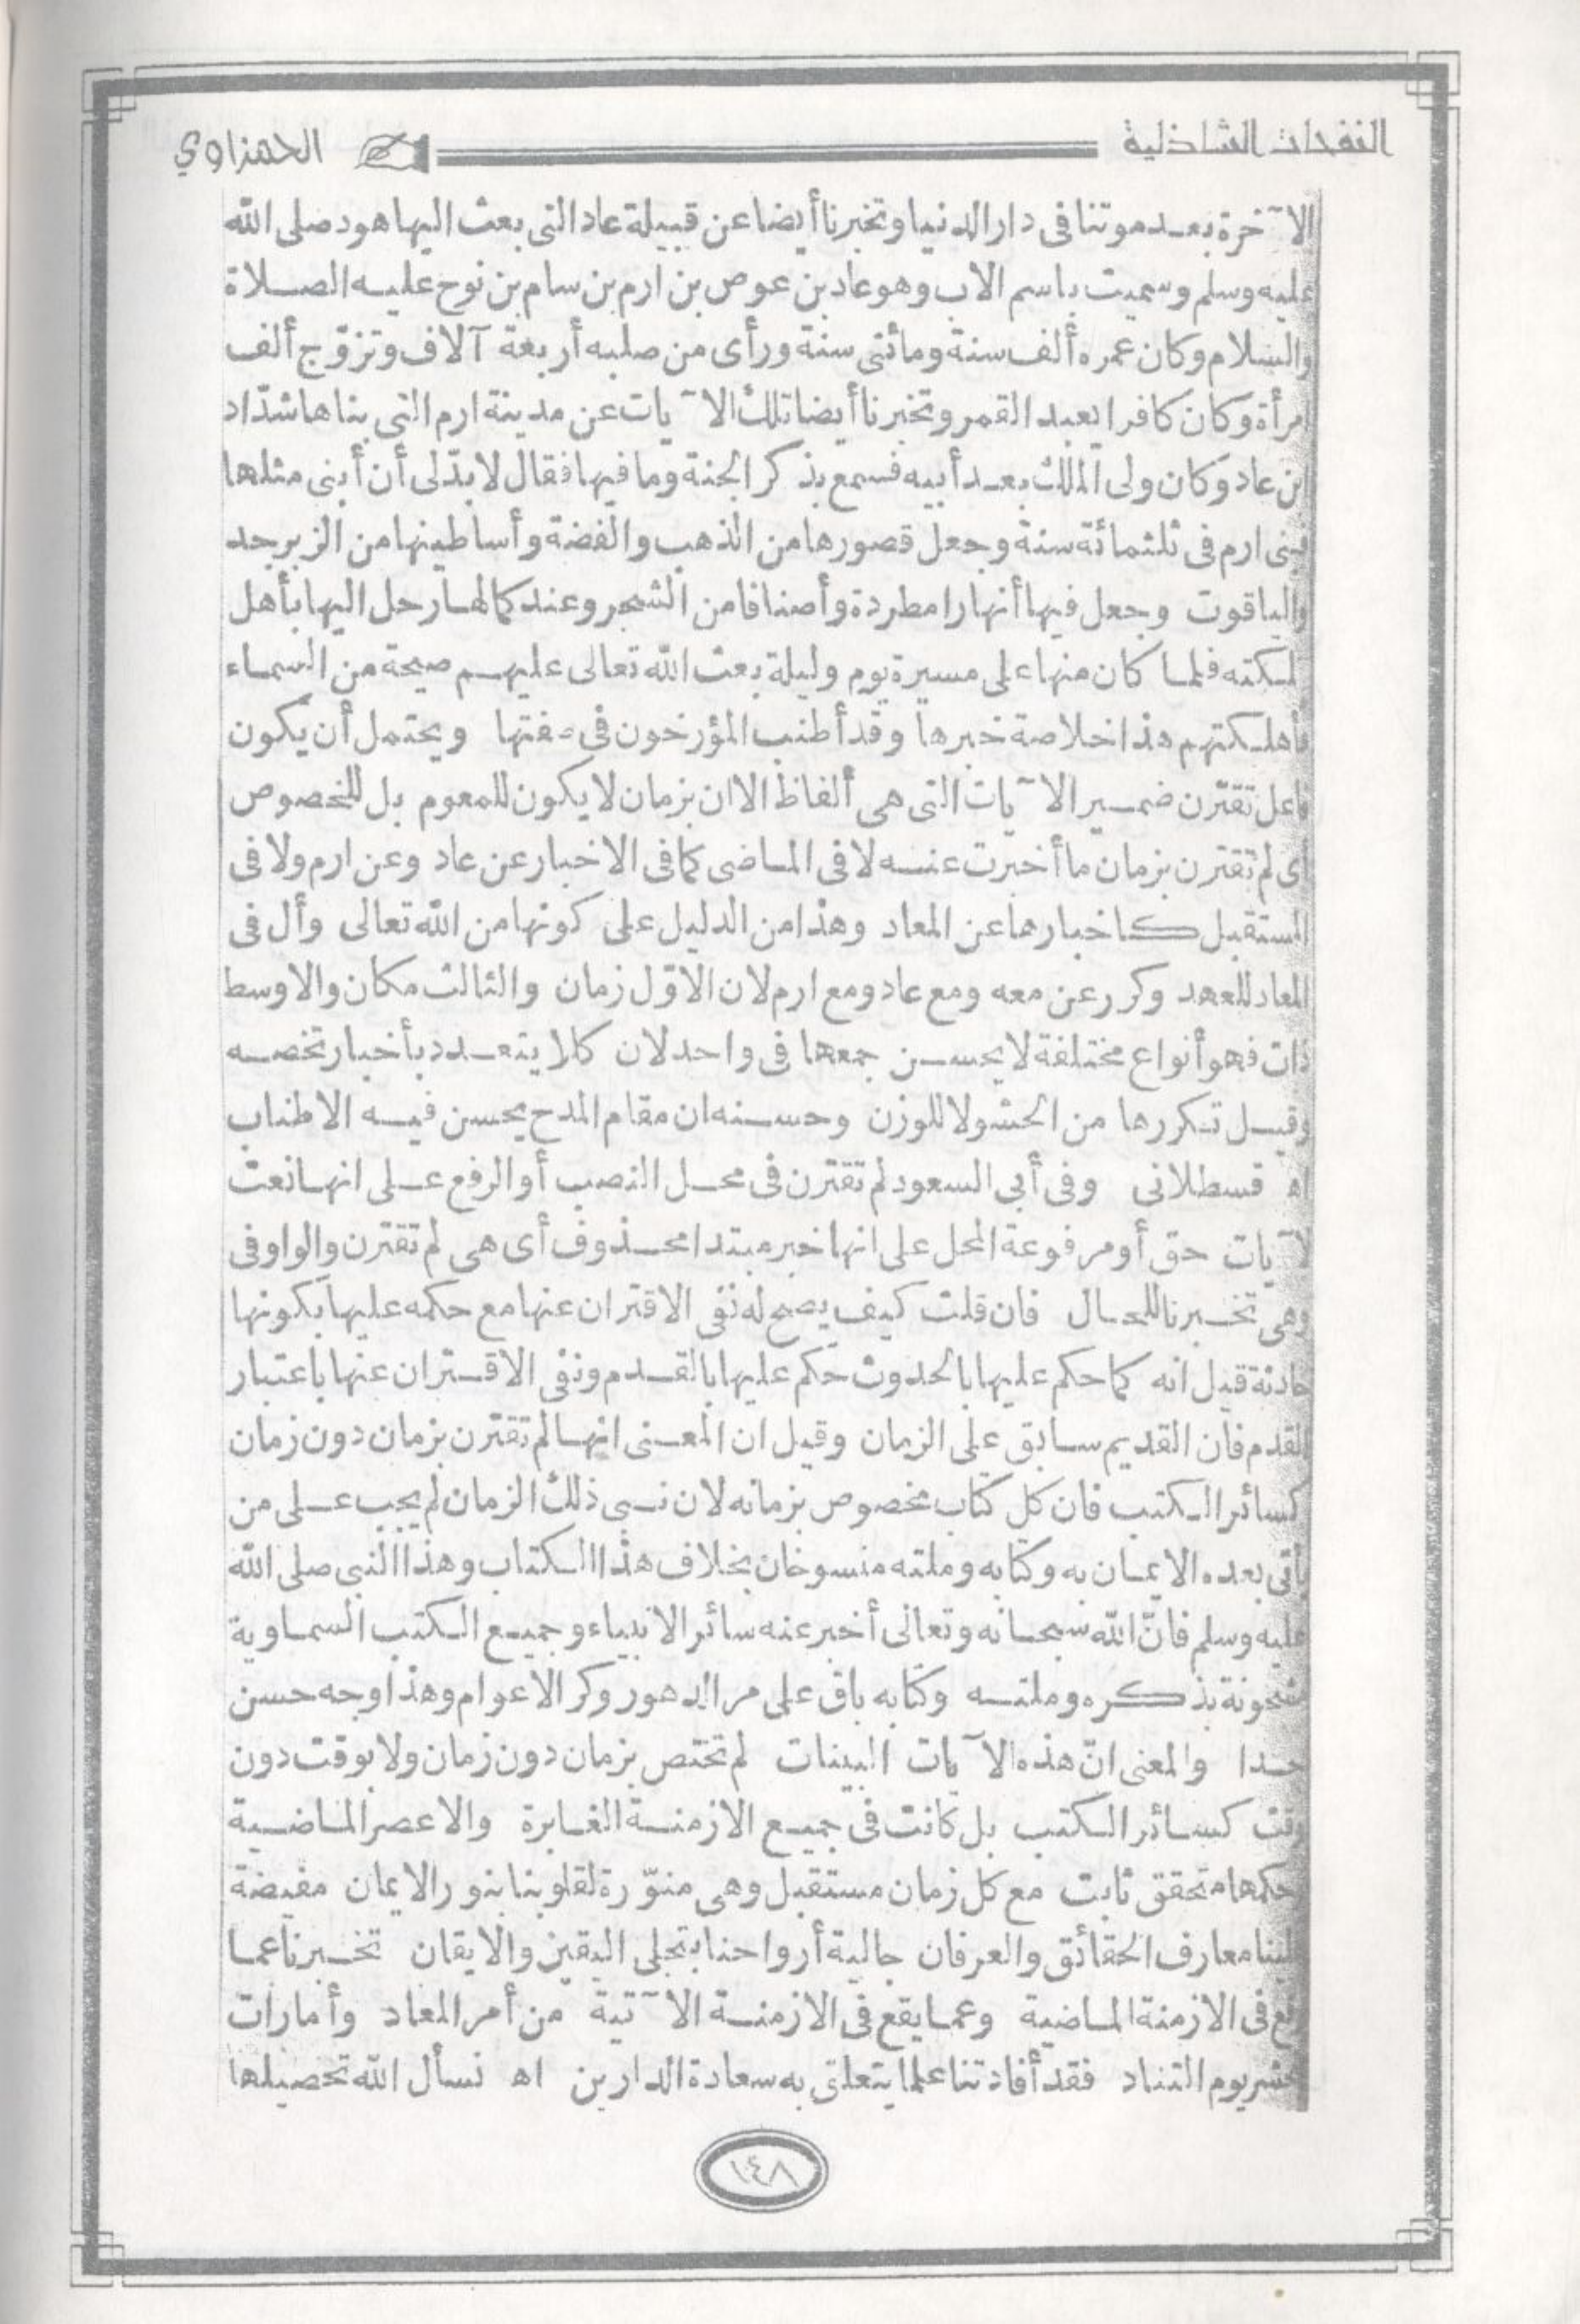 النفحات الشاذلية
الحمزاوي
الآخرة بعد موتنا في دار الدنيا وتخبرنا أيضا عن قبيلة عاد التي بعث اليها هود صلى الله
عليه وسلم وسميت باسم الاب وهو عاد بن عوص بن ارم بن سام بن نوح عليه الصلاة
والسلام وكان عمره ألف سنة ومائتي سنة ورأى من صلبه أربعة آلاف وتزوّج ألف
امرأة وكان كافرا يعبد القمر وتخبرنا أيضا تلك الآيات عن مدينة ارم التي بناها شدّاد
ابن عاد وكان ولى الملك بعد أبيه فسمع بذكر الجنة وما فيها فقال لا بدّ لى أن أبنى مثلها
فبنى ارم في ثلثمائة سنة وجعل قصورها من الذهب والفضة وأساطينها من الزبرجد
والياقوت وجعل فيها أنهارا مطردة وأصنافا من الشجر وعند كمالها رحل اليها بأهل
مملكته فلما كان منها على مسيرة يوم وليلة بعث الله تعالى عليهم صيحة من السماء
فأهلكتهم هذا خلاصة خبرها وقد أطنب المؤرخون في صفتها ويحتمل أن يكون
فاعل تقترن ضمير الآيات التي هي ألفاظ الا ان بزمان لا يكون للمعوم بل للخصوص
أى لم تقترن بزمان ما أخبرت عنه لا في الماضى كما في الاخبار عن عاد وعن ارم ولا في
المستقبل كاخبارها عن المعاد وهذا من الدليل على كونها من الله تعالى وأل في
المعاد للعهد وكرر عن معه ومع عاد ومع ارم لان الاوّل زمان والثالث مكان والاوسط
ذات فهو أنواع مختلفة لا يحسن جمعها في واحد لان كلا يتعدد بأخبار تخصه
وقيل تكررها من الحشو لا للوزن وحسنه ان مقام المدح يحسن فيه الاطناب
اه قسطلانى وفي أبي السعود لم تقترن في محل النصب أو الرفع على انها نعت
لآيات حق أو مرفوعة المحل على انها خبر مبتدا محذوف أى هي لم تقترن والواو في
وهي تخبرنا للحال فان قلت كيف يصح له نفي الاقتران عنها مع حكمه عليها بكونها
حادثة قيل انه كما حكم عليها بالحدوث حكم عليها بالقدم ونفي الاقتران عنها باعتبار
القدم فان القديم سابق على الزمان وقيل ان المعنى انها لم تقترن بزمان دون زمان
كسائر الكتب فان كل كتاب مخصوص بزمانه لان نبي ذلك الزمان لم يجب على من
يأتي بعده الايمان به وكتابه وملته منسوخان بخلاف هذا الكتاب وهذا النبي صلى الله
عليه وسلم فانّ الله سبحانه وتعالى أخبر عنه سائر الانبياء وجميع الكتب السماوية
مشحونة بذكره وملته وكتابه باق على مر الدهور وكر الاعوام وهذا وجه حسن
جدا والمعنى انّ هذه الآيات البينات لم تختص بزمان دون زمان ولا بوقت دون
وقت كسائر الكتب بل كانت في جميع الازمنة الغابرة والاعصر الماضية
حكمها متحقق ثابت مع كل زمان مستقبل وهي منوّرة لقلوبنا بنور الايمان مفيضة
علينا معارف الحقائق والعرفان جالية أرواحنا بتجلى اليقين والايقان تخبرنا عما
وقع في الازمنة الماضية وعما يقع في الازمنة الآتية من أمر المعاد وأمارات
حشر يوم التناد فقد أفادتنا علما يتعلق به سعادة الدارين اه نسأل الله تحصيلها
١٤٨